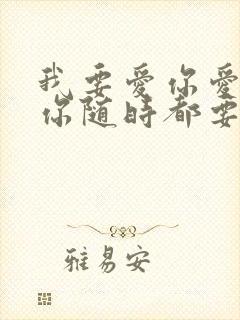 我要爱你爱
你随时都要
雅易安